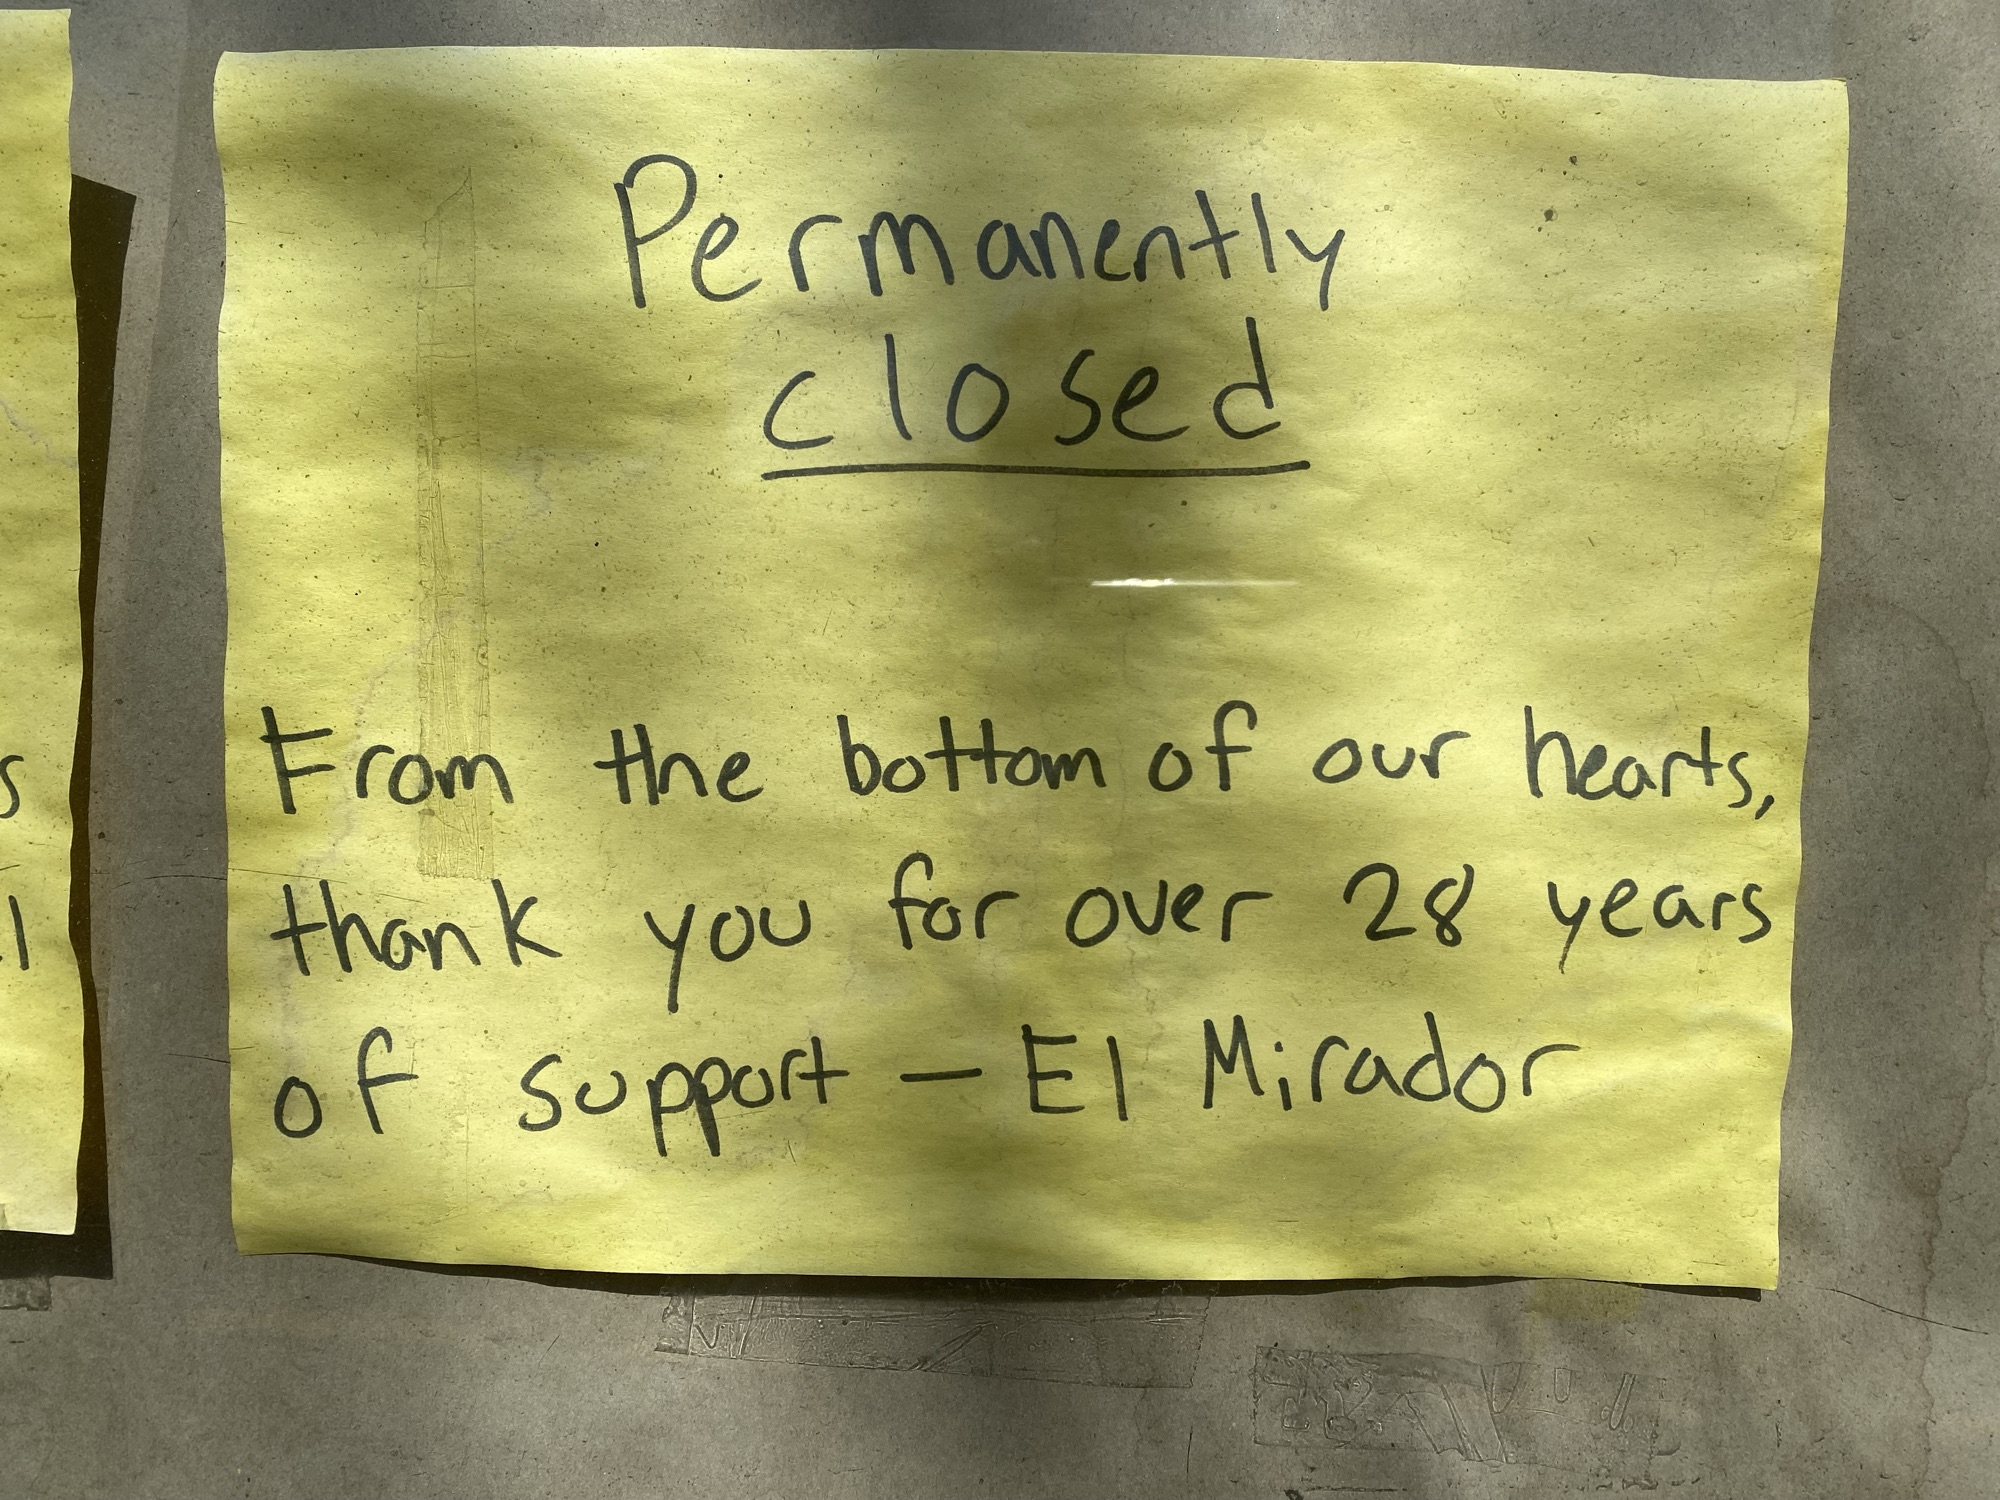 Permanently
closed
From the bottom of our hearts,
thank you for over 28 years
of support — El Mirador